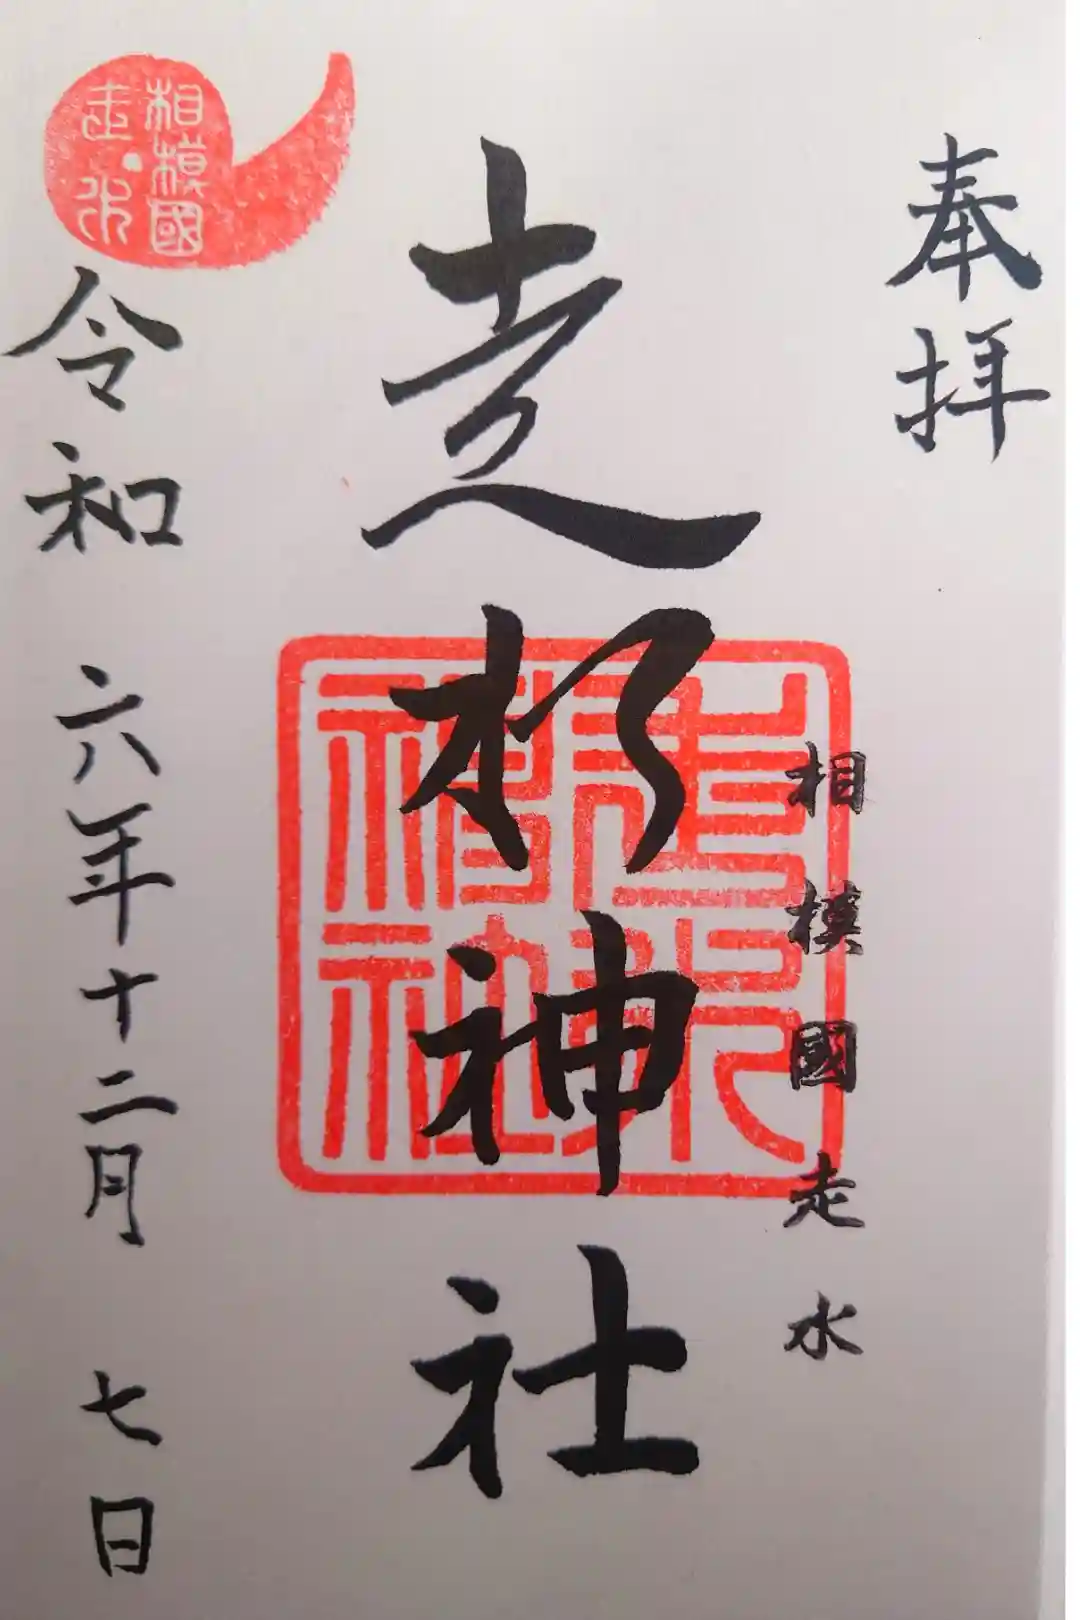 奉拝
相模國走水
走水神社
走水
神社
相模國
走水
令和六年十二月七日